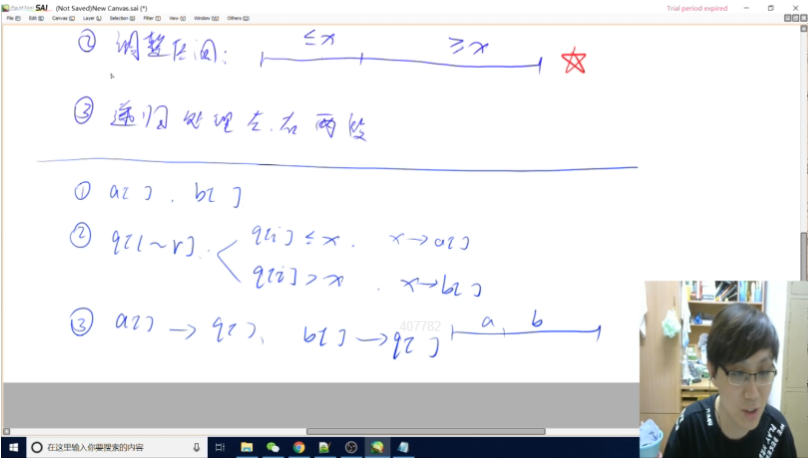 SAI (Not Saved)New Canvas.sai (*) Trial period expired
File Edit Canvas Layer Selection Filter View Window Others
② 调整区间: ≤x ≥x
③ 递归处理左、右两段
① a[ ] . b[ ]
② q[l~r].
q[i] ≤ x. x→a[ ]
q[i] > x . x→b[ ]
③ a[ ] → q[ ], b[ ] → q[ ] a b
407782
在这里输入你要搜索的内容